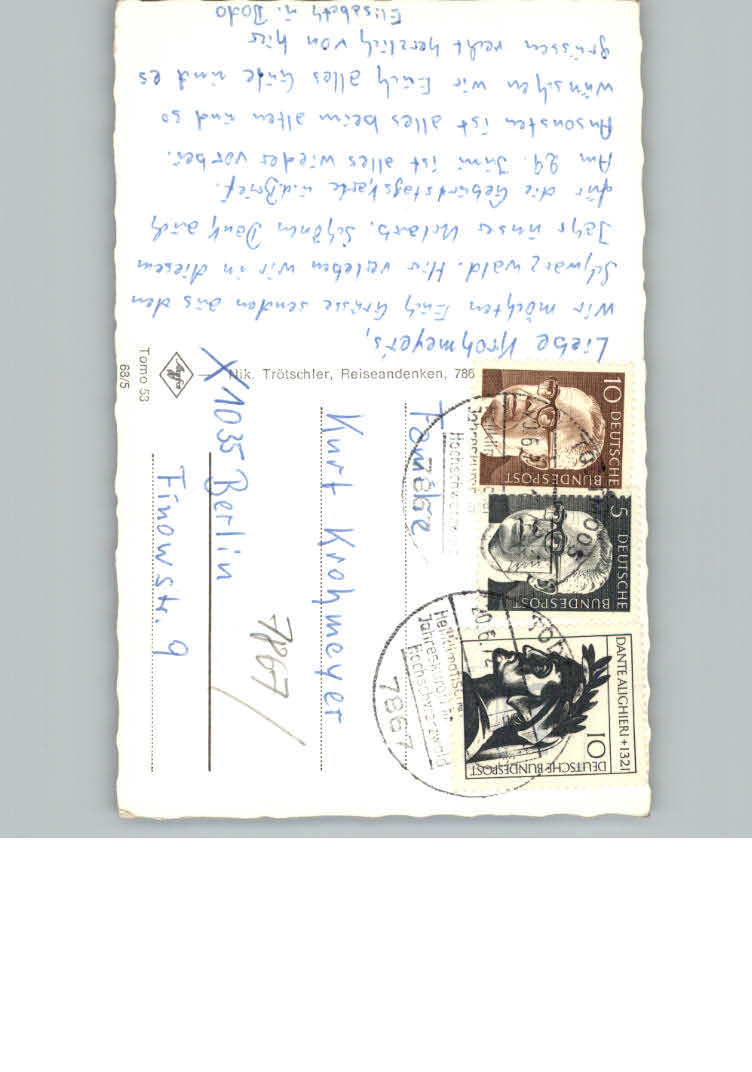 Liebe Krohmeyer's,
Wir möchten Euch Grüsse senden aus den
Schwarzwald. Hir verleben wir in diesen
Jahr unser Urlaub. Schönen Dank auch
für die Geburtstagskarte u.d. Brief.
Am 29. Juni ist alles wieder vorbei.
Ansonsten ist alles beim alten und so
wünschen wir Euch alles Gute und es
grüssen recht herzlich von hir
Elisabeth u. Dodo
Nik. Trötschler, Reiseandenken, 786
Tomo 53
68/5
Familie
Kurt Krohmeyer
X 1035 Berlin
Finowstr. 9
7867
10 DEUTSCHE BUNDESPOST
5 DEUTSCHE BUNDESPOST
DANTE ALIGHIERI +1321
10 DEUTSCHE BUNDESPOST
20.6.72
Heilklimatischer
Jahreskurort im
Hochschwarzwald
7867
Hochschwarzwald